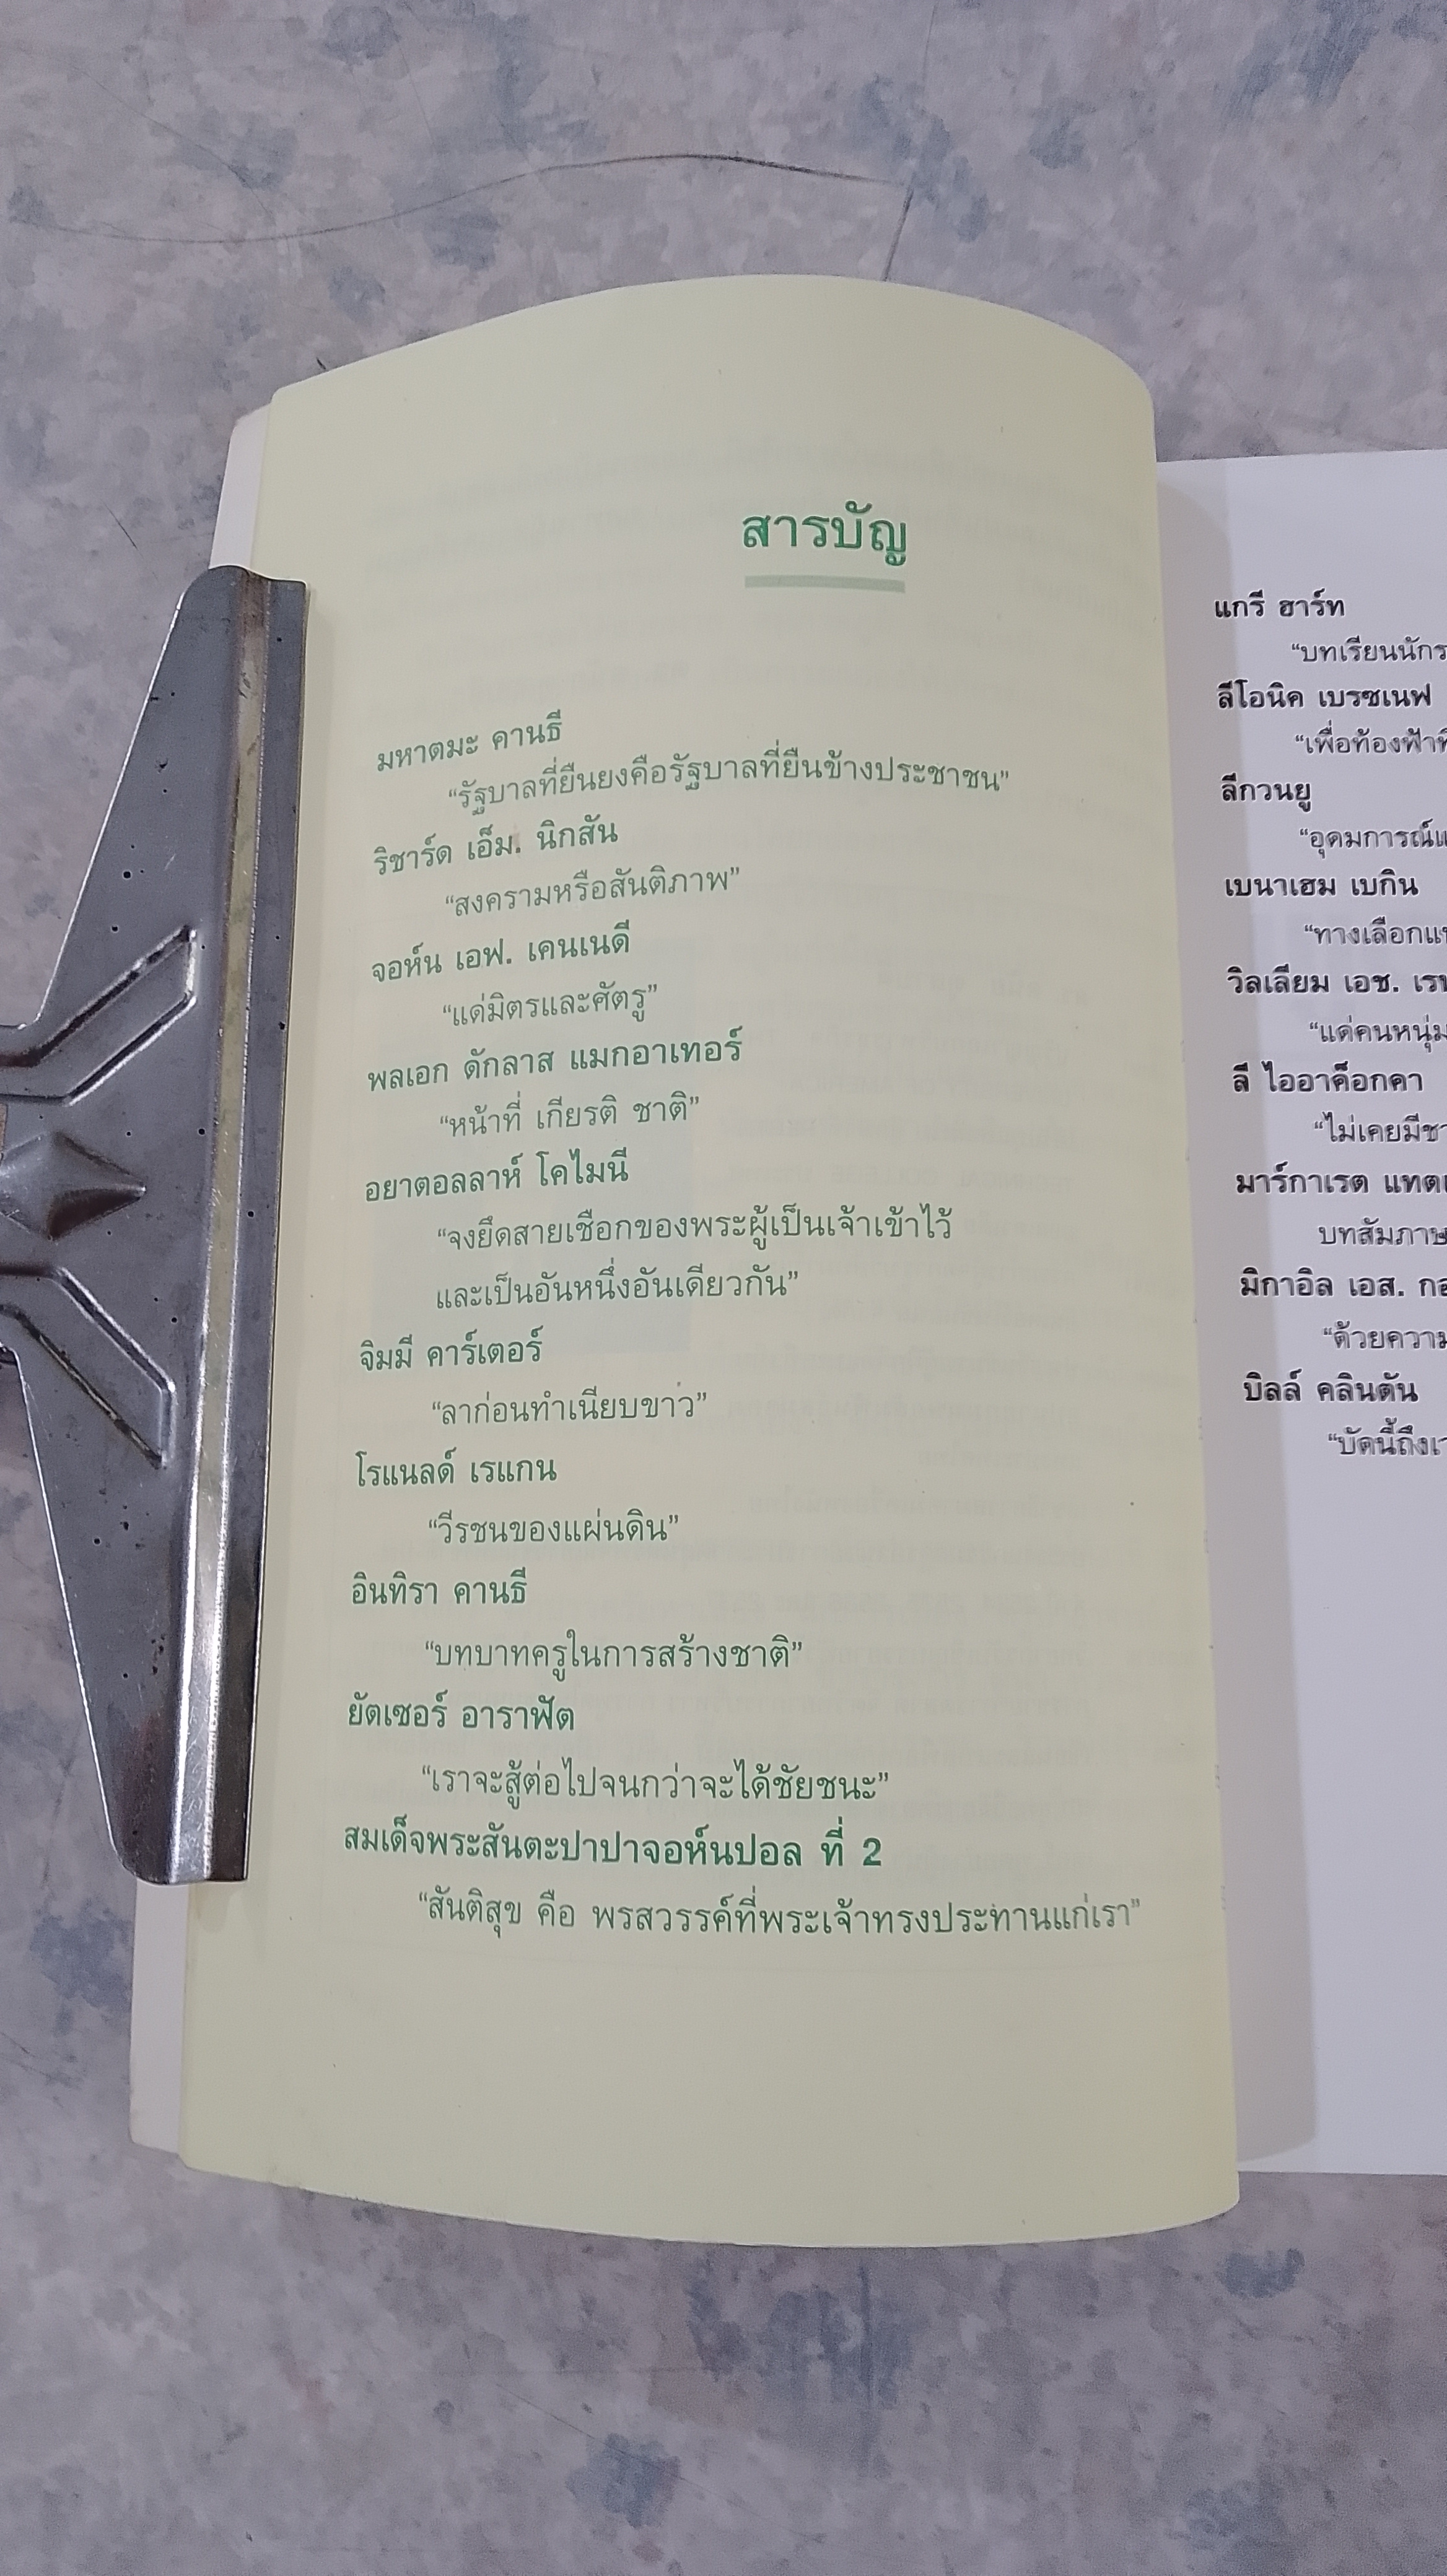 สารบัญ
มหาตมะ คานธี
“รัฐบาลที่ยืนยงคือรัฐบาลที่ยืนข้างประชาชน”
ริชาร์ด เอ็ม. นิกสัน
“สงครามหรือสันติภาพ”
จอห์น เอฟ. เคนเนดี
“แด่มิตรและศัตรู”
พลเอก ดักลาส แมกอาเทอร์
“หน้าที่ เกียรติ ชาติ”
อยาตอลลาห์ โคไมนี
“จงยึดสายเชือกของพระผู้เป็นเจ้าเข้าไว้
และเป็นอันหนึ่งอันเดียวกัน”
จิมมี คาร์เตอร์
“ลาก่อนทำเนียบขาว”
โรแนลด์ เรแกน
“วีรชนของแผ่นดิน”
อินทิรา คานธี
“บทบาทครูในการสร้างชาติ”
ยัตเซอร์ อาราฟัต
“เราจะสู้ต่อไปจนกว่าจะได้ชัยชนะ”
สมเด็จพระสันตะปาปาจอห์นปอล ที่ 2
“สันติสุข คือ พรสวรรค์ที่พระเจ้าทรงประทานแก่เรา”
แกรี ฮาร์ท
“บทเรียนนักร
ลีโอนิค เบรซเนฟ
“เพื่อท้องฟ้าที่
ลีกวนยู
“อุดมการณ์แ
เบนาเฮม เบกิน
“ทางเลือกแห
วิลเลียม เอช. เรห
“แด่คนหนุ่ม
ลี ไออาค็อกคา
“ไม่เคยมีชา
มาร์กาเรต แทต
บทสัมภาษ
มิกาอิล เอส. กอ
“ด้วยความ
บิลล์ คลินตัน
“บัดนี้ถึงเว